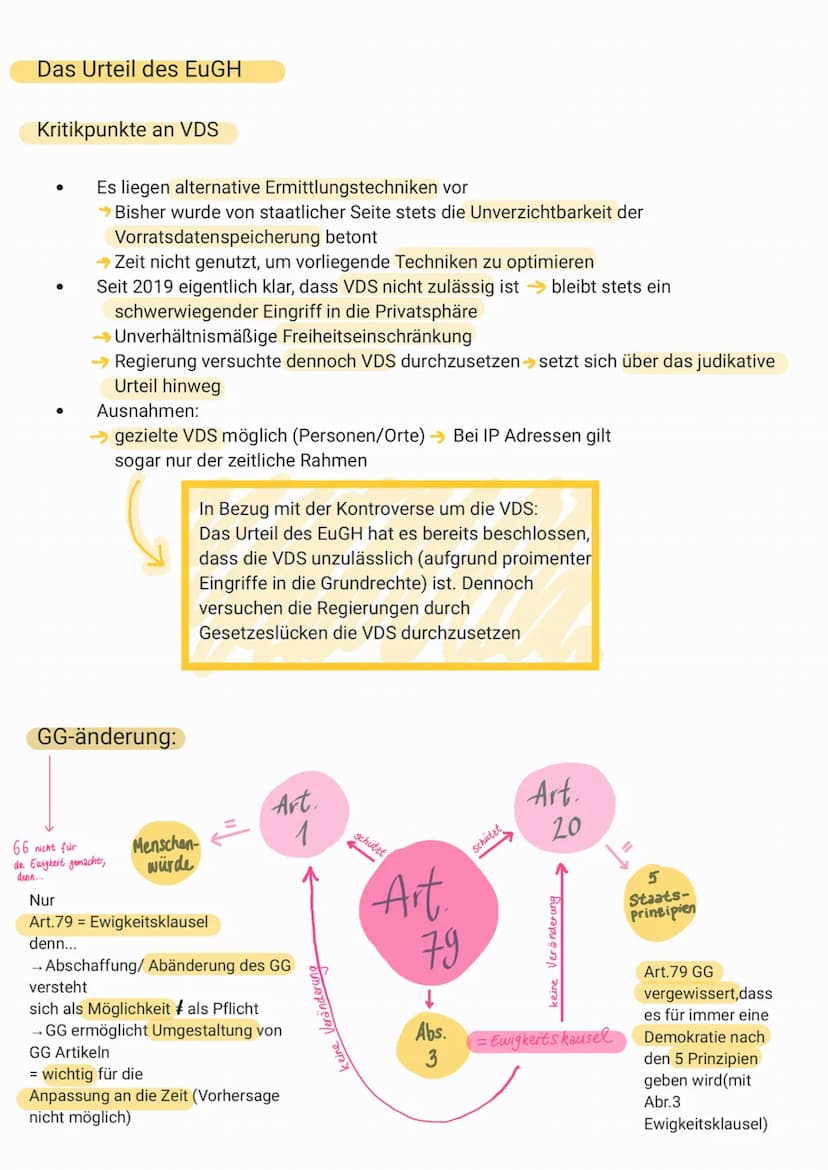 Das Urteil des EuGH
Kritikpunkte an VDS
• Es liegen alternative Ermittlungstechniken vor
→ Bisher wurde von staatlicher Seite stets die Unverzichtbarkeit der
Vorratsdatenspeicherung betont
→ Zeit nicht genutzt, um vorliegende Techniken zu optimieren
• Seit 2019 eigentlich klar, dass VDS nicht zulässig ist → bleibt stets ein
schwerwiegender Eingriff in die Privatsphäre
→ Unverhältnismäßige Freiheitseinschränkung
→ Regierung versuchte dennoch VDS durchzusetzen → setzt sich über das judikative
Urteil hinweg
• Ausnahmen:
→ gezielte VDS möglich (Personen/Orte) → Bei IP Adressen gilt
sogar nur der zeitliche Rahmen
In Bezug mit der Kontroverse um die VDS:
Das Urteil des EuGH hat es bereits beschlossen,
dass die VDS unzulässlich (aufgrund proimenter
Eingriffe in die Grundrechte) ist. Dennoch
versuchen die Regierungen durch
Gesetzeslücken die VDS durchzusetzen
GG-änderung:
GG nicht für
die Ewigkeit gemacht,
denn...
Nur
Art.79 = Ewigkeitsklausel
denn...
→ Abschaffung/ Abänderung des GG
versteht
sich als Möglichkeit ≠ als Pflicht
→ GG ermöglicht Umgestaltung von
GG Artikeln
= wichtig für die
Anpassung an die Zeit (Vorhersage
nicht möglich)
Menschen-
würde
=
Art.
1
schützt
Art.
79
schützt
Art.
20
=
5
Staats-
prinzipien
keine Veränderung
Abs.
3
= Ewigkeitsklausel
keine Veränderung
Art.79 GG
vergewissert,dass
es für immer eine
Demokratie nach
den 5 Prinzipien
geben wird(mit
Abr.3
Ewigkeitsklausel)